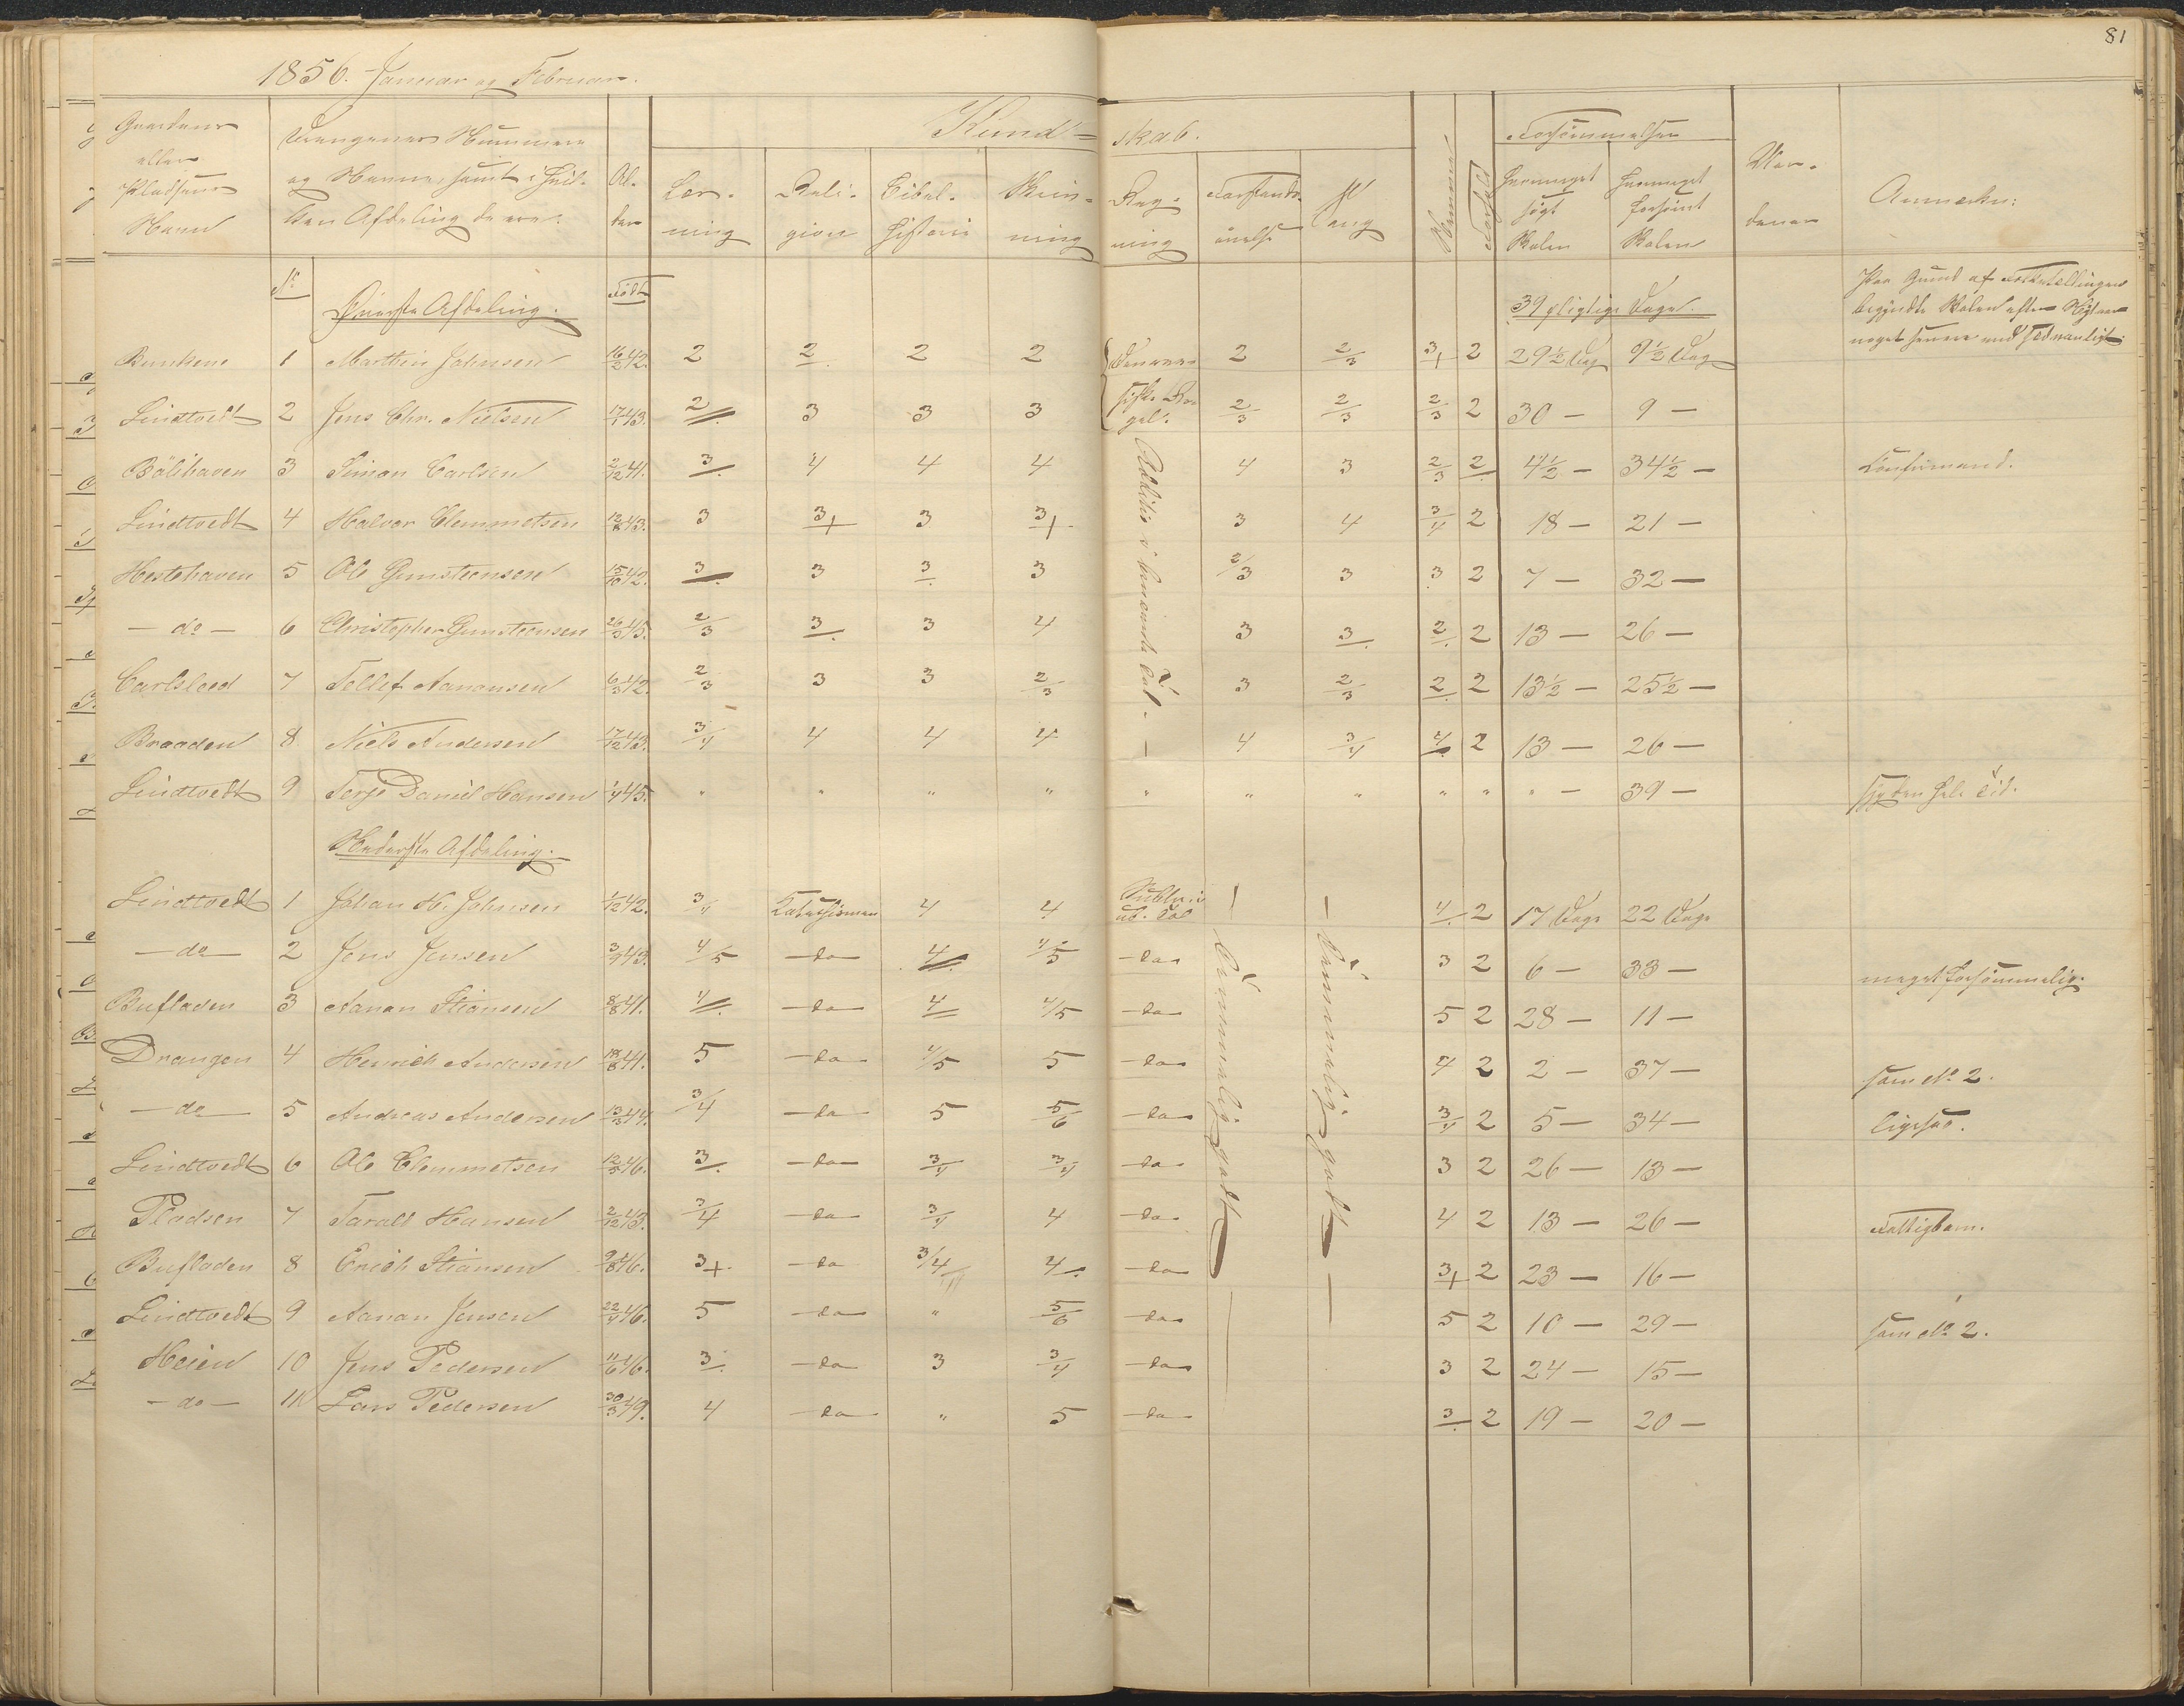 81
1856. Januar og Februar.
Gaardens eller Pladsens Navn
Drengenes Nummere og Navne, samt i hvilken Afdeling de ere.
Alder
Kundskab.
Læsning
Religion
Bibelhistorie
Skrivning
Regning
Forstandsøvelse
Sang
Nemme
Forhold
Forsømmelser
hvormeget søgt Skolen
hvormeget forsømt Skolen
Anmærkn:
No
Øverste Afdeling.
Født
39 pligtige Dage.
Paa Grund af Folketællingen begyndte Skolen efter Nytaar noget senere end sædvanligt.
1 Marthin Johnsen 16/2 42. 2 2 2 2 2 2/3 3+ 2 29½ Dag 9½ Dag
Lindtvedt 2 Jens Chr. Nielsen 17/1 43. 2 3 3 3 2/3 2/3 2/3 2 30 — 9 —
3 Simon Carlsen 2/12 41. 3 4 4 4 4 3 2/3 2 4½ — 34½ — Confirmand.
Lindtvedt 4 Halvor Clemmetsen 12/8 43. 3 3+ 3 3+ 3 4 3/4 2 18 — 21 —
Hestehaven 5 Ole Gunsteensen 15/10 42. 3 3 3 3 2/3 3 3 2 7 — 32 —
— do — 6 Christopher Gunsteensen 26/3 45. 2/3 3 3 4 3 3 2 2 13 — 26 —
7 Tellef Aanonsen 6/3 42. 2/3 3 3 2/3 3 2/3 2 2 13½ — 25½ —
Braaden 8 Niels Andersen 17/12 43. 3/4 4 4 4 — 4 3/4 4 2 13 — 26 —
Lindtvedt 9 Terje Daniel Hansen 45. " " " " " " " " " " — 39 — syg den hele Tid.
Additio i benævnte Tal.
Nederste Afdeling.
Lindtvedt 1 Johan H. Johnsen 1/12 42. 3/4 Katechismen 4 4 — — 4 2 17 Dage 22 Dage
— do — 2 Jens Jensen 3/9 43. 4/5 — do — 4 4/5 — do — 3 2 6 — 33 — meget forsømmelig.
Bufladen 3 Aanon Stiansen 8/8 41. 4 — do — 4 4/5 — do — 5 2 28 — 11 —
Drangen 4 Henrich Andersen 18/8 41. 5 — do — 4/5 5 — do — 4 2 2 — 37 — som No 2.
— do — 5 Andreas Andersen 13/3 44. 3/4 — do — 5 5/6 — do — 3/4 2 5 — 34 — ligesaa.
Lindtvedt 6 Ole Clemmetsen 12/5 46. 3 — do — 3/4 3/4 — do — 3 2 26 — 13 —
Pladsen 7 Taralt Hansen 2/12 43. 3/4 — do — 3/4 4 — do — 4 2 13 — 26 — Fattigbarn.
Bufladen 8 Erich Stiansen 9/8 46. 3+ — do 3/4 4 — do — 3+ 2 23 — 16 —
Lindtvedt 9 Aanon Jensen 22/4 46. 5 — do — " 5/6 — do — 5 2 10 — 29 — som No 2.
Heien 10 Jens Pedersen 11/6 46. 3 — do — 3 3/4 — do — 3 2 24 — 15 —
— do — 11 Lars Pedersen 30/3 49. 4 — do — " 5 — do — 3 2 19 — 20 —
Temmelig godt
Temmelig godt